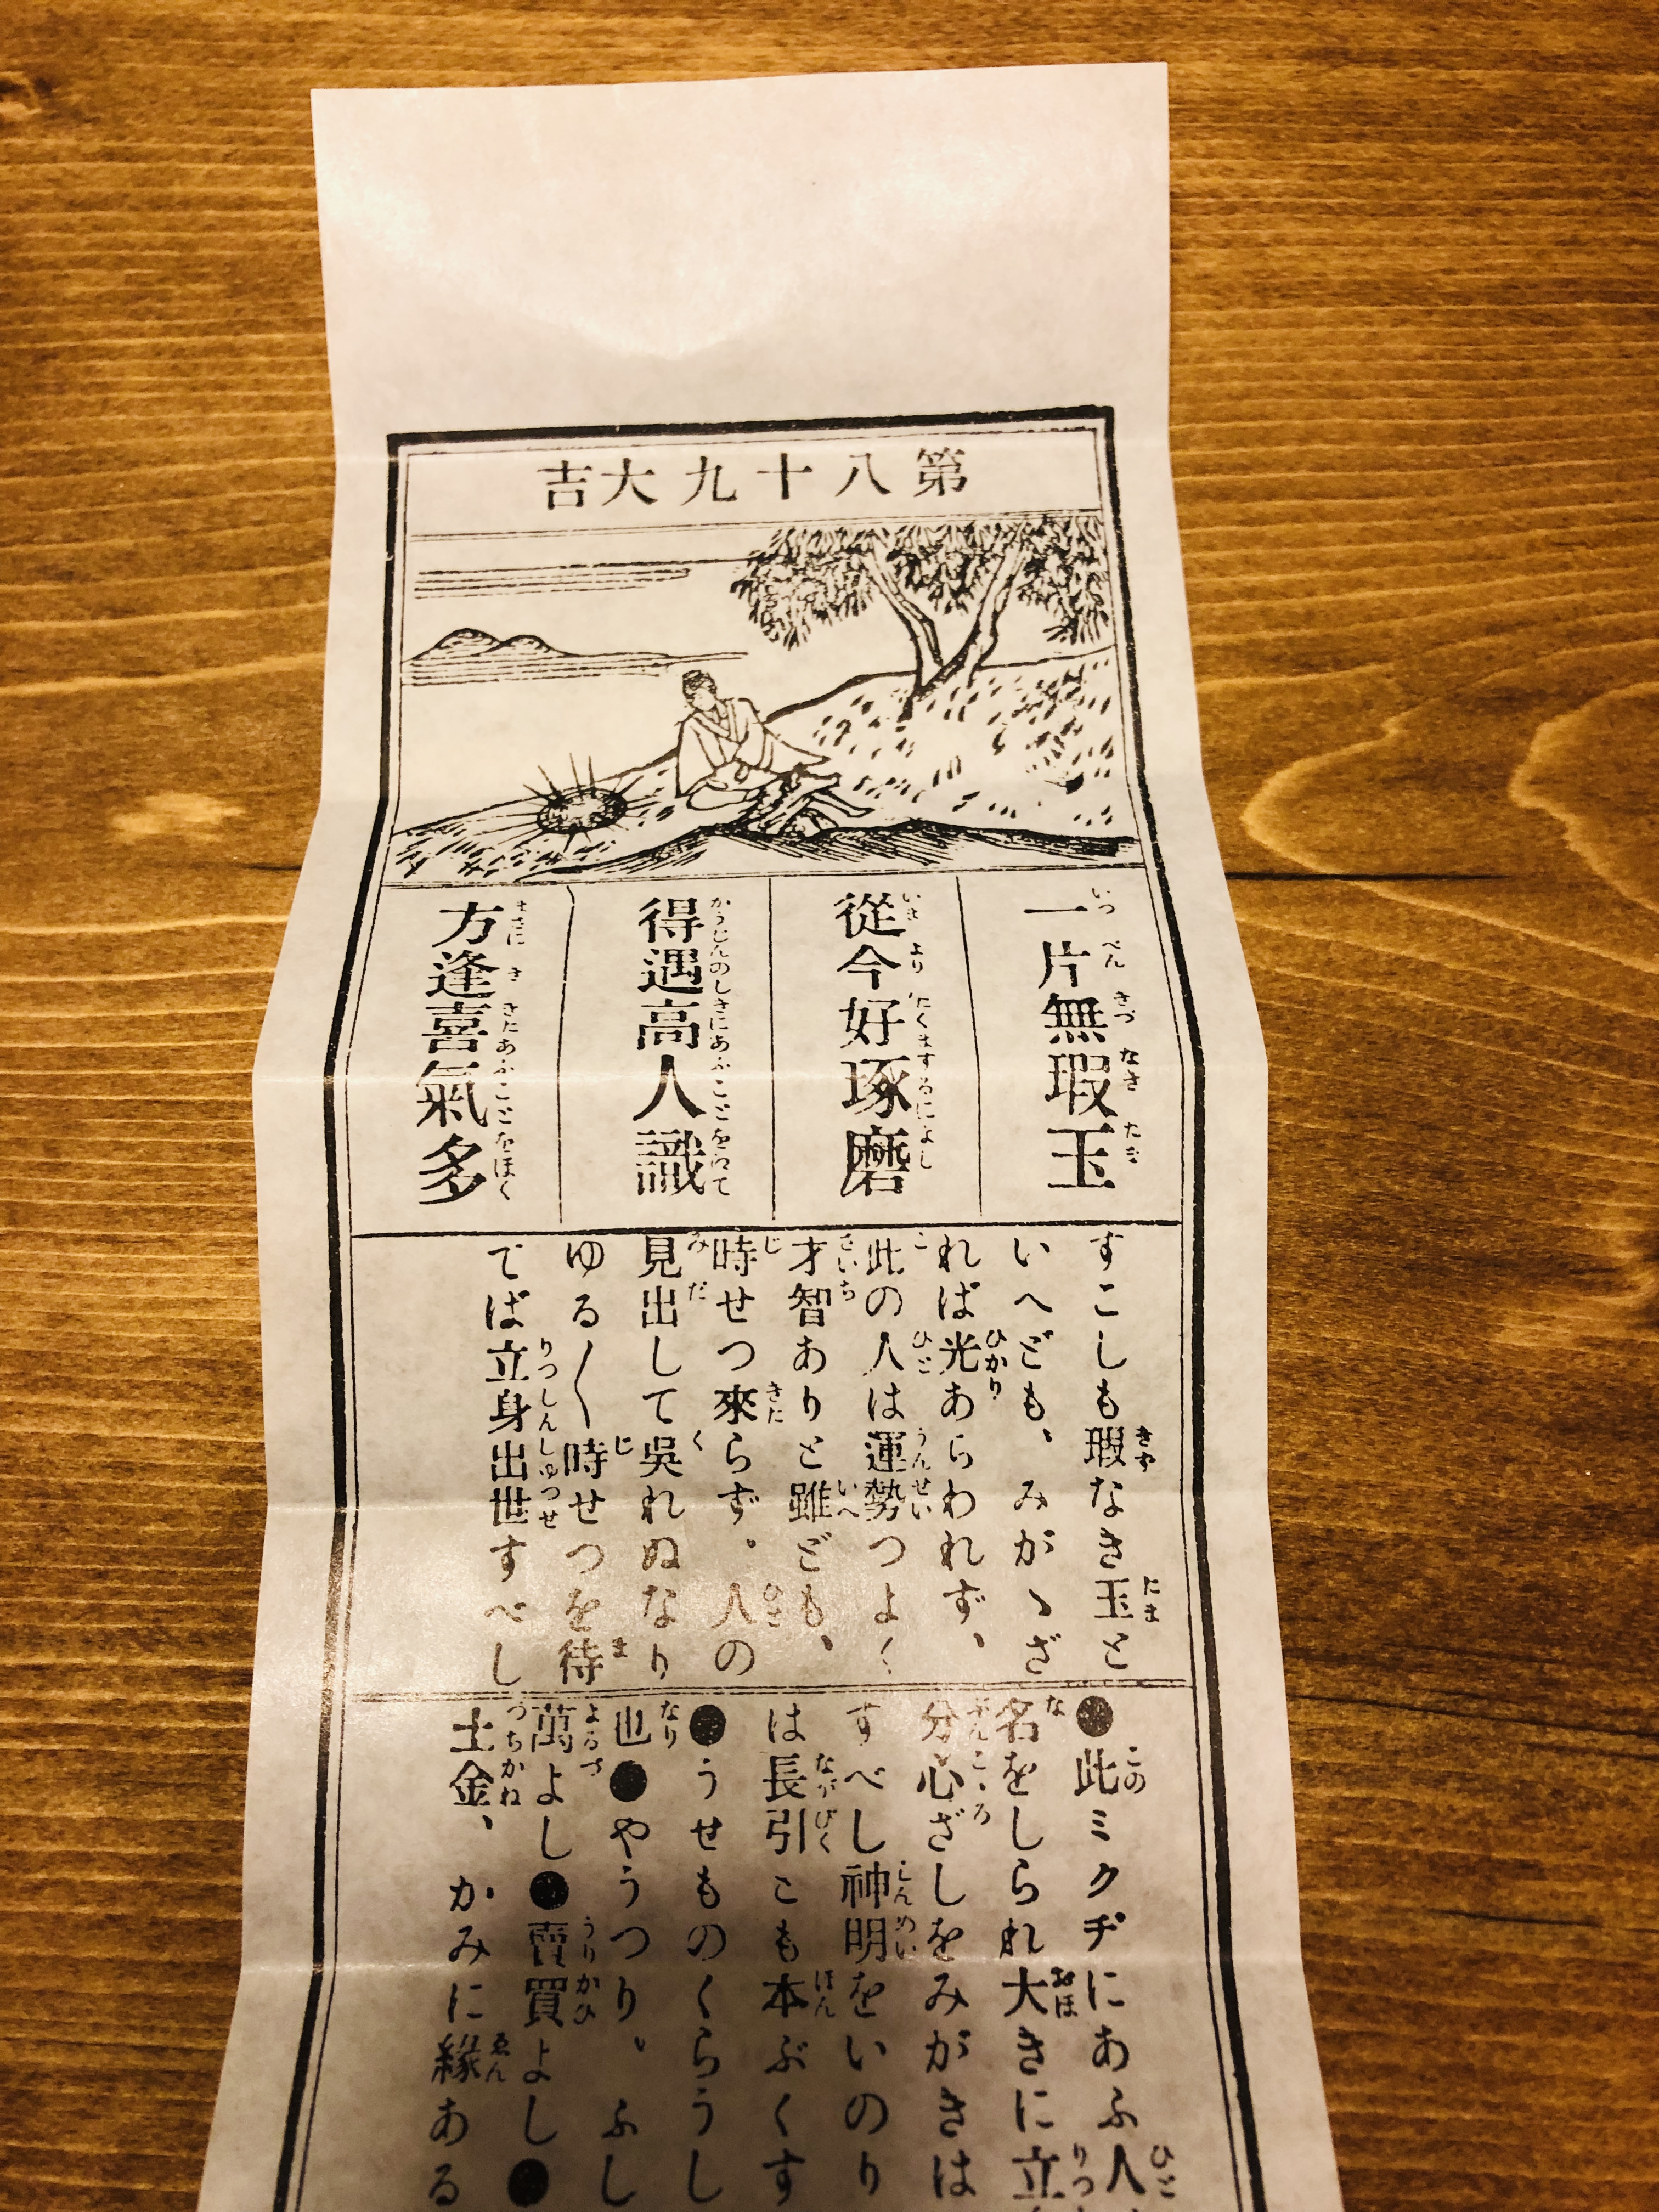 第八十九大吉
一片無瑕玉
從今好琢磨
得遇高人識
方逢喜氣多
すこしも瑕なき玉と
いへども、みがゝざ
れば光あらわれず、
此の人は運勢つよく
才智ありと雖ども、
時せつ來らず。人の
見出して吳れぬなり
ゆる〱時せつを待
てば立身出世すべし
●此ミクヂにあふ人
名をしられ大きに立
分心ざしをみがきは
すべし神明をいのり
は長引とも本ぶくす
●うせものくらうし
也●やうつり、ふし
萬よし●賣買よし●
土金、かみに緣ある